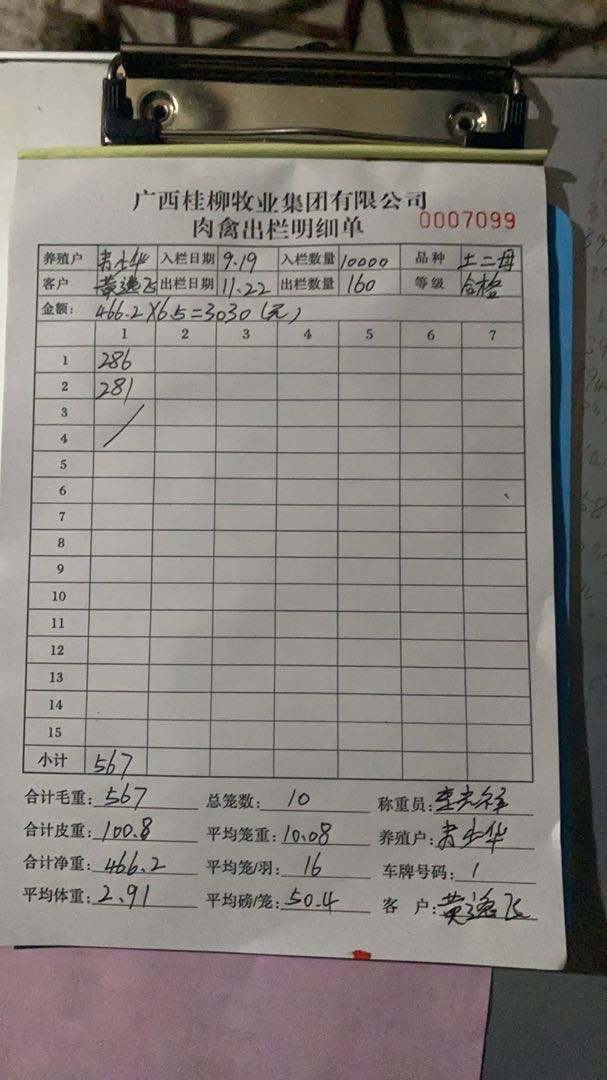 广西桂柳牧业集团有限公司
肉禽出栏明细单 0007099
养殖户 入栏日期 9.19 入栏数量 10000 品种 土二母
客户 黄逸飞 出栏日期 11.22 出栏数量 160 等级 合格
金额: 466.2×6.5=3030(元)
1 2 3 4 5 6 7
1 286
2 281
3
4
5
6
7
8
9
10
11
12
13
14
15
小计 567
合计毛重: 567 总笼数: 10 称重员:
合计皮重: 100.8 平均笼重: 10.08 养殖户:
合计净重: 466.2 平均笼/羽: 16 车牌号码: 1
平均体重: 2.91 平均磅/笼: 50.4 客 户: 黄逸飞